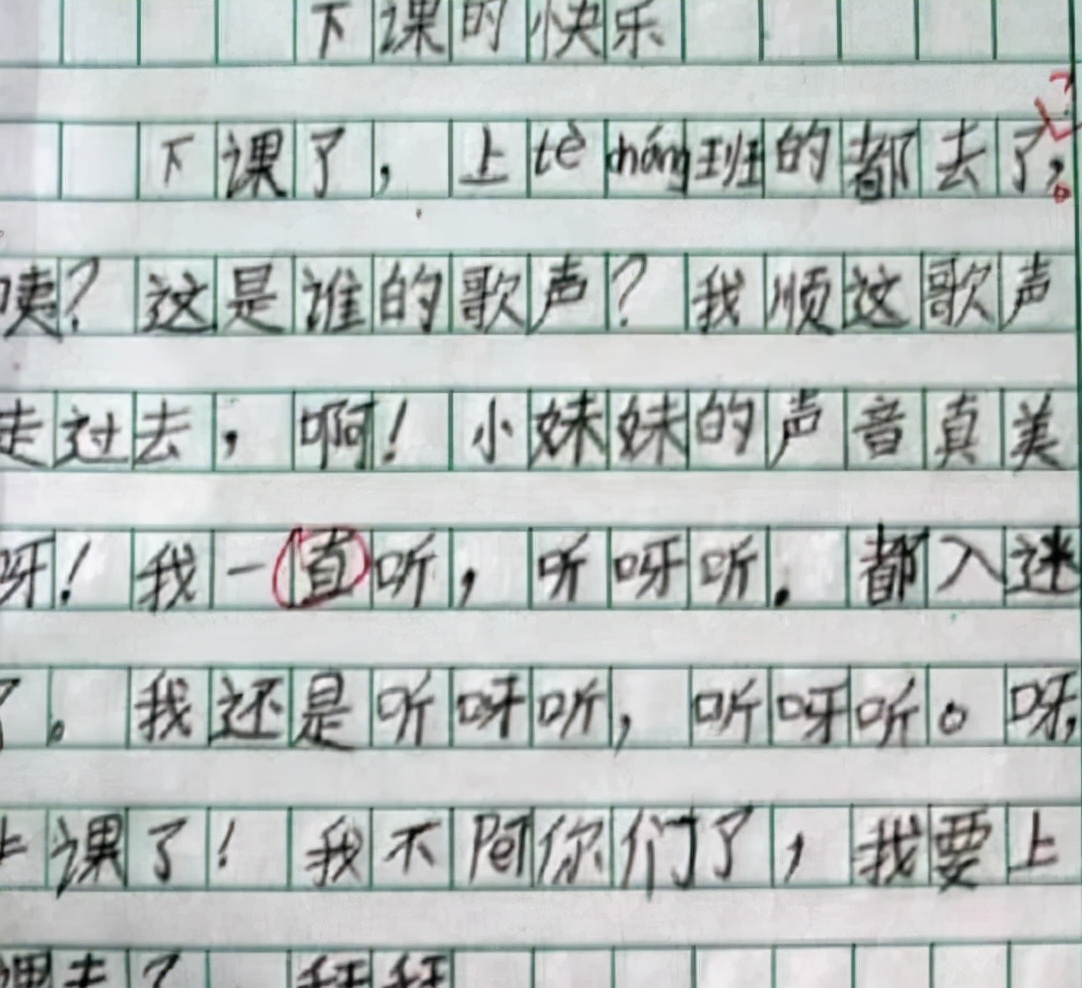 下课的快乐
下课了，上tè cháng班的都去了。
咦？这是谁的歌声？我顺这歌声
走过去，啊！小妹妹的声音真美
呀！我一直听，听呀听.都入迷
了。我还是听呀听，听呀听。呀，
上课了！我不陪你们了，我要上
课去了拜拜